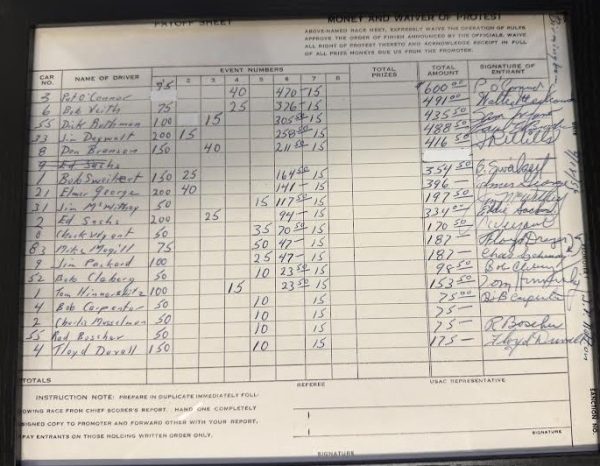 PAYOFF SHEET MONEY AND WAIVER OF PROTEST
ABOVE-NAMED RACE MEET, EXPRESSLY WAIVE THE OPERATION OF RULES
APPROVE THE ORDER OF FINISH ANNOUNCED BY THE OFFICIALS, WAIVE
ALL RIGHT OF PROTEST THERETO AND ACKNOWLEDGE RECEIPT IN FULL
OF ALL PRIZE MONEYS DUE US FROM THE PROMOTER.
CAR NO. NAME OF DRIVER EVENT NUMBERS TOTAL PRIZES TOTAL AMOUNT SIGNATURE OF ENTRANT
2 3 4 5 6 7 8
3 Pat O'Connor 75 40 470 - 15 600 00 P O'Connor
6 Bob Veith 75 25 376 - 15 491 00
55 Dick Rathman 100 15 305 50 15 435 50
33 Jim Daywalt 200 15 258 50 15 488 50
8 Don Branson 150 40 211 50 15 416 50
9 Ed Sachs
1 Bob Sweikert 150 25 164 50 15 354 50 B Sweikert
21 Elmer George 200 40 141 - 15 396 - Elmer George
31 Jim McWithey 50 15 117 50 15 197 50
2 Ed Sachs 200 25 94 - 15 334 00 Eddie Sachs
6 Chuck Weyant 50 35 70 50 15 170 50 C Weyant
83 Mike Magill 75 50 47 - 15 187 -
9 Jim Packard 100 25 47 - 15 187 -
52 Bob Cleberg 50 10 23 50 15 98 50 Bob Cleberg
1 Tom Hinnershitz 100 15 23 50 15 153 50 Tom Hinnershitz
4 Bob Carpenter 50 10 15 75 00 Bob Carpenter
2 Charlie Musselman 50 10 15 75 -
55 Red Boscher 50 10 15 75 - R Boscher
4 Floyd Davall 150 10 15 175 - Floyd Duvall
TOTALS
REFEREE USAC REPRESENTATIVE
INSTRUCTION NOTE: PREPARE IN DUPLICATE IMMEDIATELY FOLL-
OWING RACE FROM CHIEF SCORER'S REPORT. HAND ONE COMPLETELY
SIGNED COPY TO PROMOTER AND FORWARD OTHER WITH YOUR REPORT.
PAY ENTRANTS ON THOSE HOLDING WRITTEN ORDER ONLY.
SIGNATURE
SIGNATURE
SANCTION NO